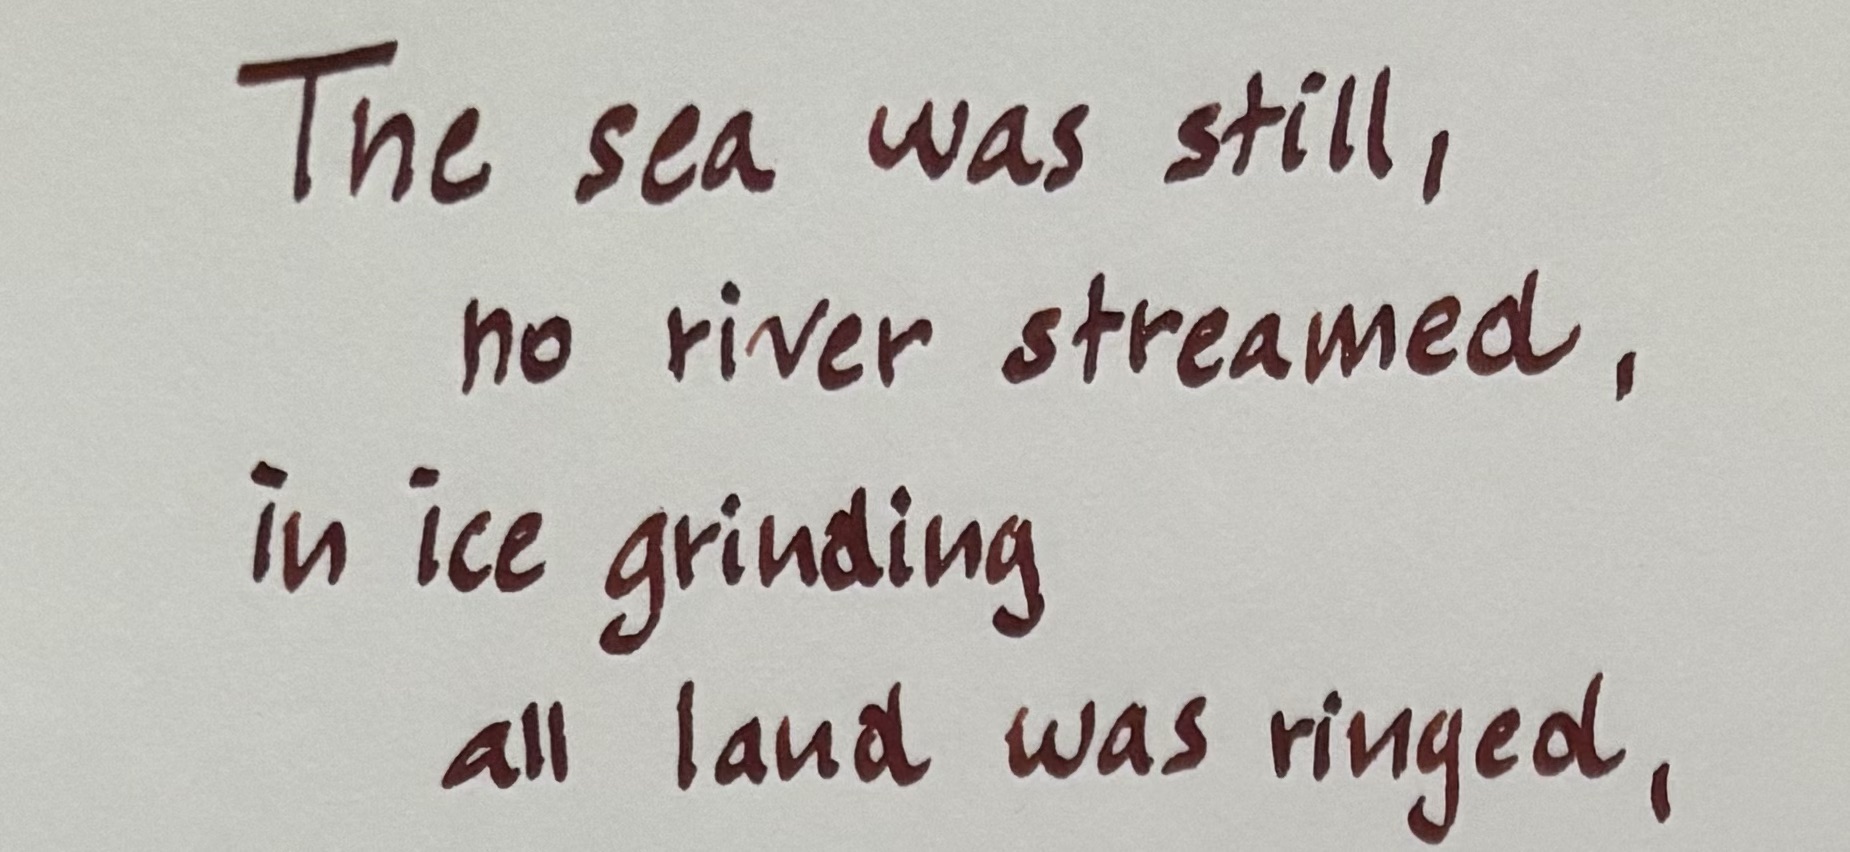 The sea was still,
no river streamed,
in ice grinding
all land was ringed,